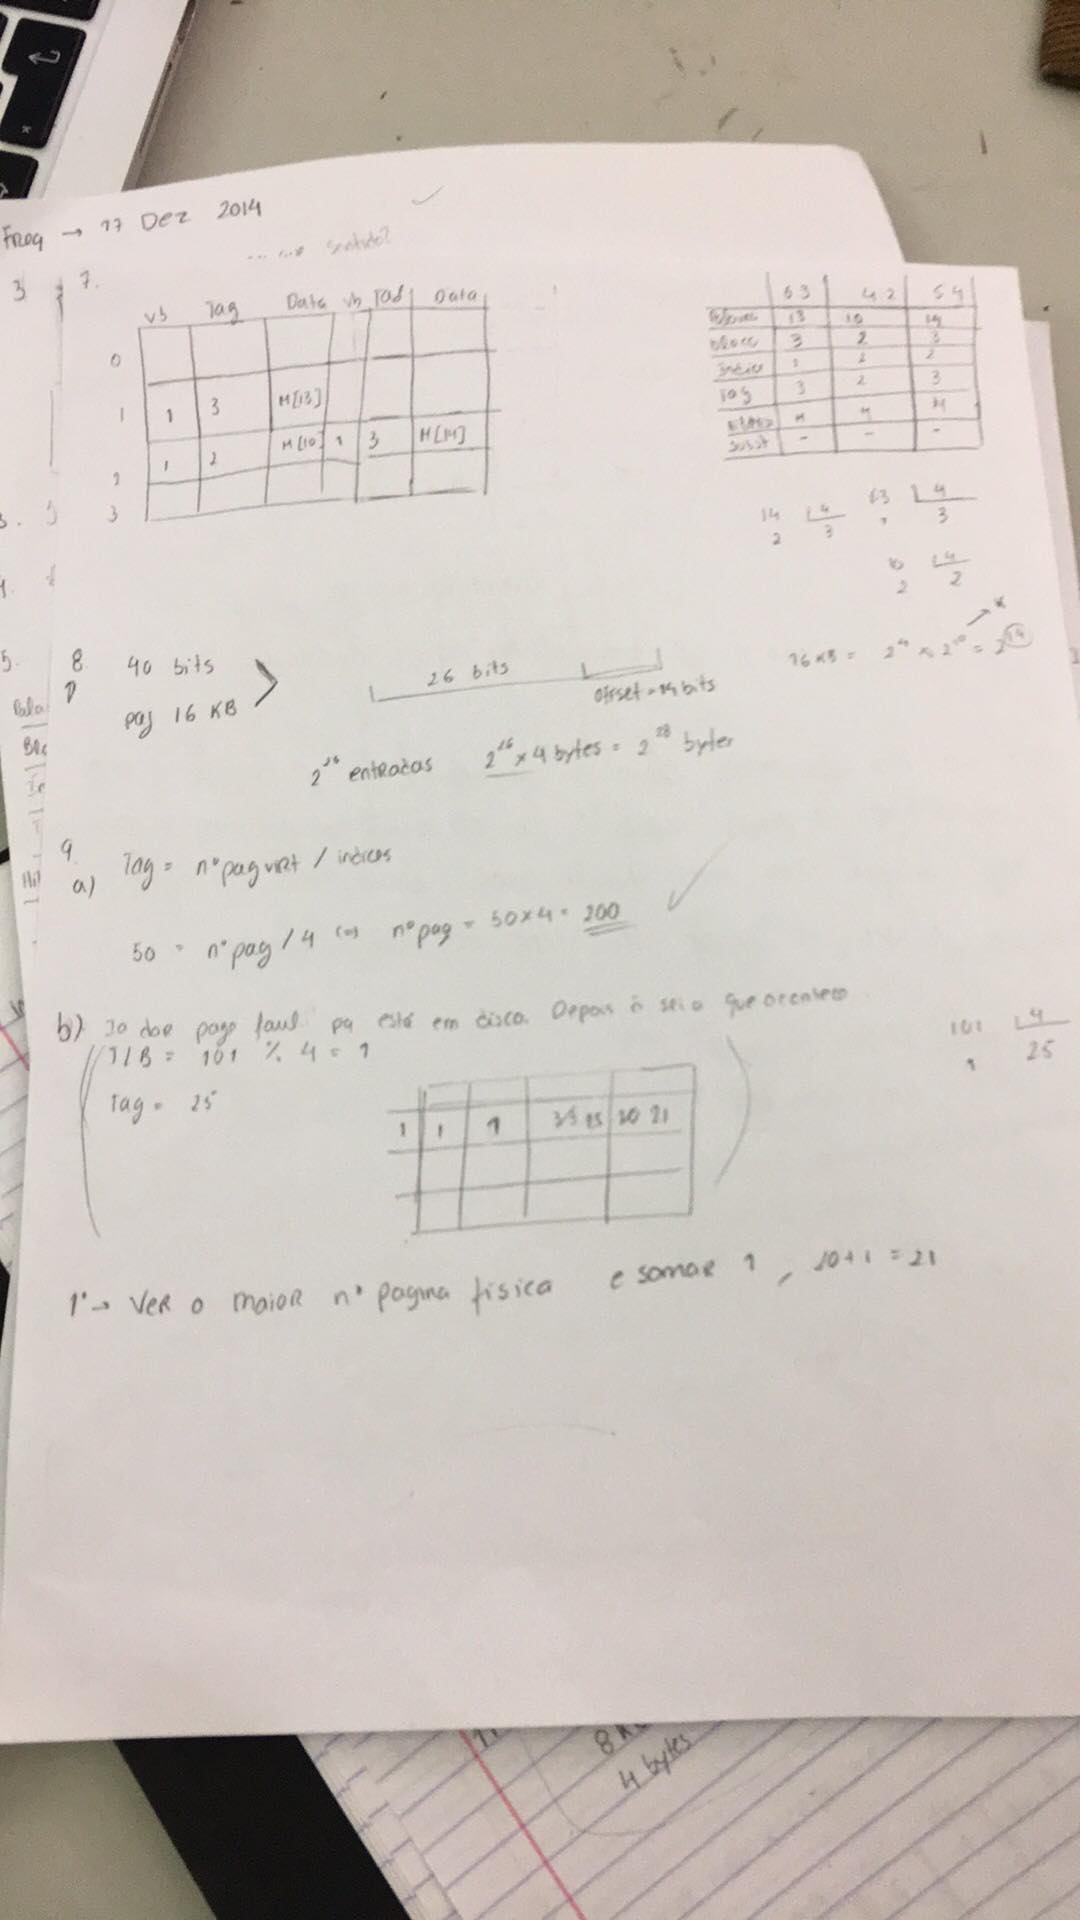 Freq → 17 Dez 2014
sentido?
3
7.
vb Tag Data vb Tad Data
0
1 1 3 M[13]
2 1 2 M[10] 1 3 M[14]
3
63 42 54
13 10 14
3 2 3
1 2 2
Tag 3 2 3
M M M
Subst - - -
14 4 63 4
2 3 3
10 4
2 2
5.
8 40 bits
pag 16 KB
26 bits
offset = 14 bits
16 KB = 2^4 x 2^10 = 2^14
2^26 entradas 2^26 x 4 bytes = 2^28 bytes
9
a) Tag = nº pag virt / indices
50 = nº pag / 4 (=) nº pag = 50x4 = 200
b) page faul. pq está em disco. Depois ñ sei o que acontece
TLB = 101 % 4 = 1
101 4
1 25
Tag = 25
1 1 1 25 20 21
1º → Ver o maior nº pagina física e somar 1, 20+1 = 21
4 bytes